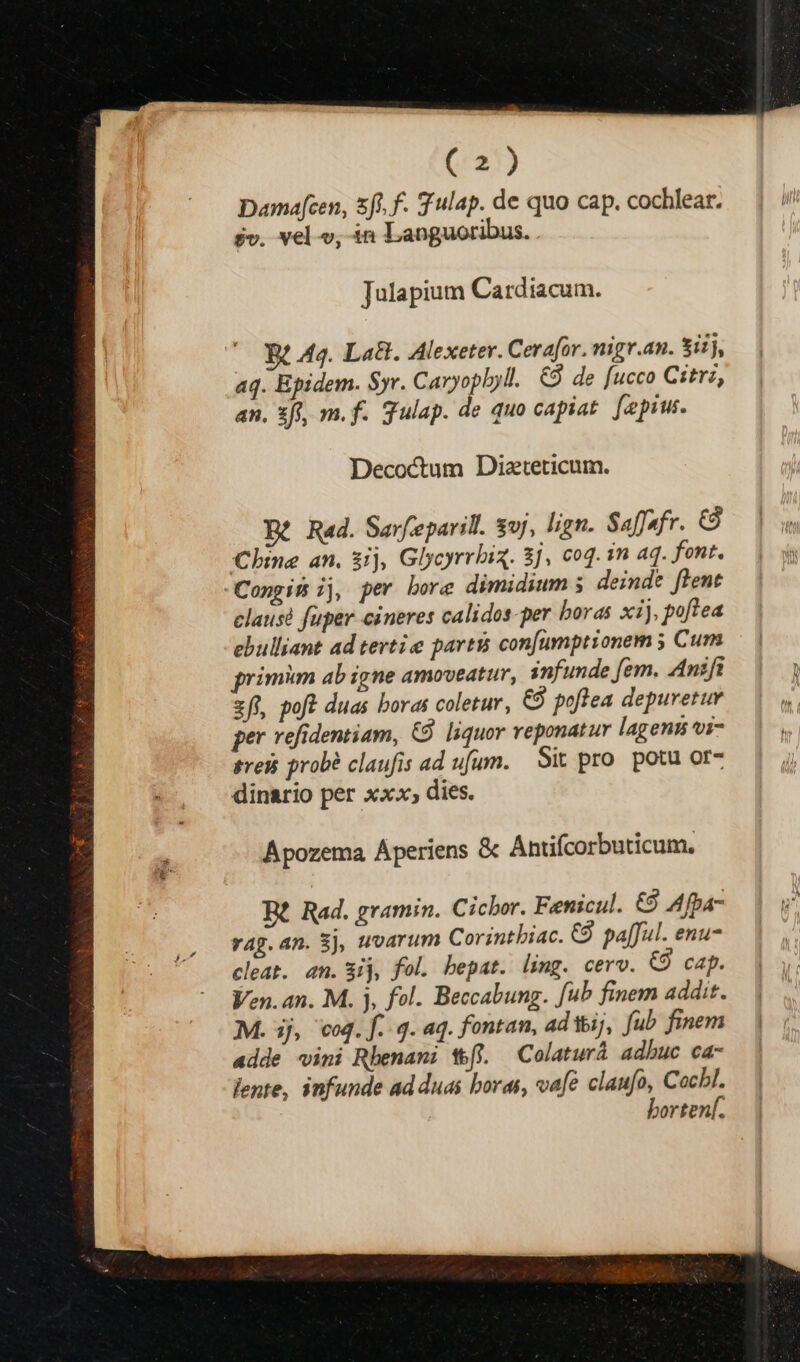 ( 2 )
Damaſcen, ℥ſſ. f. Julap. de quo cap. cochlear.
iv. vel v, in Languoribus.
Julapium Cardiacum.
℞ Aq. Lact. Alexeter. Ceraſor. nigr. an. ℥iij,
aq. Epidem. Syr. Caryophyll. & de ſucco Citri,
an. ℥ſſ, m. f. Julap. de quo capiat ſæpius.
Decoctum Diæteticum.
℞ Rad. Sarſæparill. ℥vj, lign. Saſſafr. &
Chinæ an. ℥ij, Glycyrrhiz. ℥j, coq. in aq. font.
Congiis ij, per horæ dimidium; deinde ſtent
clausè ſuper cineres calidos per horas xij, poſtea
ebulliant ad tertiæ partis conſumptionem; Cum
primùm ab igne amoveatur, infunde ſem. Aniſi
℥ſſ, poſt duas horas coletur, & poſtea depuretur
per reſidentiam, & liquor reponatur lagenis vi-
treis probè clauſis ad uſum. Sit pro potu or-
dinario per xxx, dies.
Apozema Aperiens & Antiſcorbuticum.
℞ Rad. gramin. Cichor. Fœnicul. & Aſpa-
rag. an. ℥j, uvarum Corinthiac. & paſſul. enu-
cleat. an. ℥ij, fol. hepat. ling. cerv. & cap.
Ven. an. M. j, fol. Beccabung. ſub finem addit.
M. ij, coq. ſ. q. aq. fontan, ad ℔ij, ſub finem
adde vini Rhenani ℔ſſ. Colaturâ adhuc ca-
lente, infunde ad duas horas, vaſe clauſo, Cochl.
hortenſ.